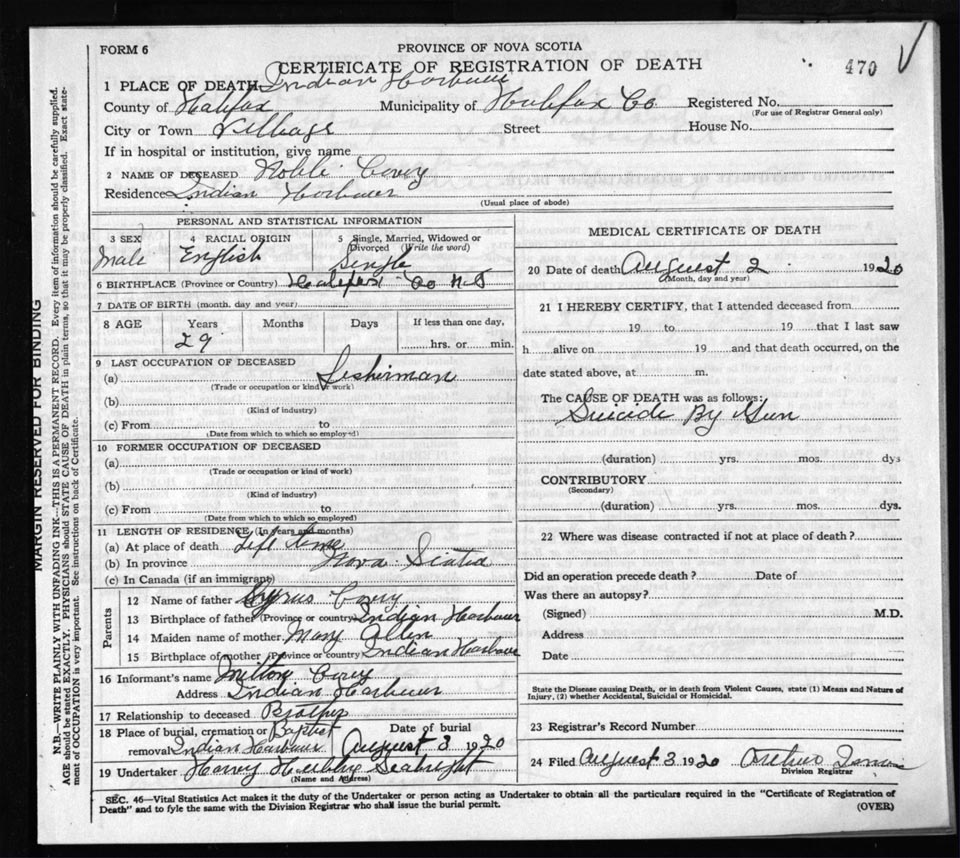 FORM 6
PROVINCE OF NOVA SCOTIA
CERTIFICATE OF REGISTRATION OF DEATH
470
1 PLACE OF DEATH Indian Harbour
County of Halifax Municipality of Halifax Co Registered No.
(For use of Registrar General only)
City or Town Village Street House No.
If in hospital or institution, give name
2 NAME OF DECEASED Noble Covey
Residence Indian Harbour
(Usual place of abode)
PERSONAL AND STATISTICAL INFORMATION
3 SEX 4 RACIAL ORIGIN 5 Single, Married, Widowed or
Divorced (Write the word)
Male English Single
6 BIRTHPLACE (Province or Country) Halifax Co N.S
7 DATE OF BIRTH (month, day and year)
8 AGE Years Months Days If less than one day,
29 hrs. or min.
9 LAST OCCUPATION OF DECEASED
(a) Fisherman
(Trade or occupation or kind of work)
(b)
(Kind of industry)
(c) From to
(Date from which to which so employed)
10 FORMER OCCUPATION OF DECEASED
(a)
(Trade or occupation or kind of work)
(b)
(Kind of industry)
(c) From to
(Date from which to which so employed)
11 LENGTH OF RESIDENCE (In years and months)
(a) At place of death Life time
(b) In province Nova Scotia
(c) In Canada (if an immigrant)
Parents
12 Name of father Cyrus Covey
13 Birthplace of father (Province or country) Indian Harbour
14 Maiden name of mother Mary Allen
15 Birthplace of mother (Province or country) Indian Harbour
16 Informant's name Milton Covey
Address Indian Harbour
17 Relationship to deceased Brother
18 Place of burial, cremation or Baptist Date of burial
removal Indian Harbour August 3 1920
19 Undertaker Harvey Hubley Seabright
(Name and Address)
MEDICAL CERTIFICATE OF DEATH
20 Date of death August 2 1920
(Month, day and year)
21 I HEREBY CERTIFY, that I attended deceased from
19 to 19 that I last saw
h alive on 19 and that death occurred, on the
date stated above, at m.
The CAUSE OF DEATH was as follows:
Suicide By Gun
(duration) yrs. mos. dys
CONTRIBUTORY
(Secondary)
(duration) yrs. mos. dys.
22 Where was disease contracted if not at place of death?
Did an operation precede death? Date of
Was there an autopsy?
(Signed) M.D.
Address
Date
State the Disease causing Death, or in death from Violent Causes, state (1) Means and Nature of
Injury, (2) whether Accidental, Suicidal or Homicidal.
23 Registrar's Record Number
24 Filed August 3 1920 Arthur
Division Registrar
SEC. 46—Vital Statistics Act makes it the duty of the Undertaker or person acting as Undertaker to obtain all the particulars required in the "Certificate of Registration of
Death" and to fyle the same with the Division Registrar who shall issue the burial permit.
(OVER)
MARGIN RESERVED FOR BINDING
N.B.—WRITE PLAINLY WITH UNFADING INK—THIS IS A PERMANENT RECORD. Every item of information should be carefully supplied.
AGE should be stated EXACTLY. PHYSICIANS should STATE CAUSE OF DEATH in plain terms, so that it may be properly classified. Exact state-
ment of OCCUPATION is very important. See instructions on back of Certificate.